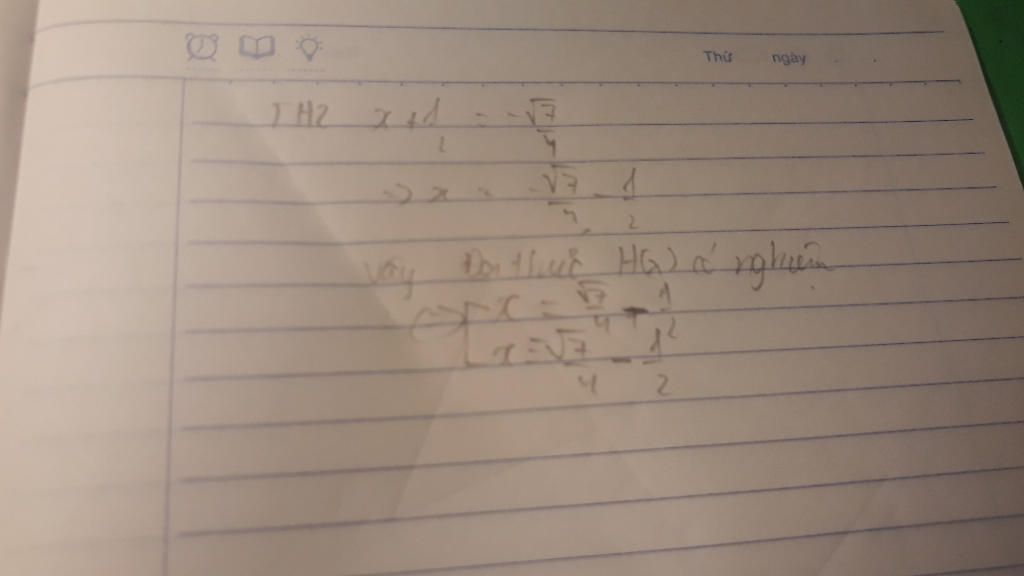 Thứ ngày
TH2 x + 1/2 = -√7/4
=> x = -√7/4 - 1/2
Vậy Đa thức H(x) có nghiệm
<=> [ x = √7/4 - 1/2
x = -√7/4 - 1/2